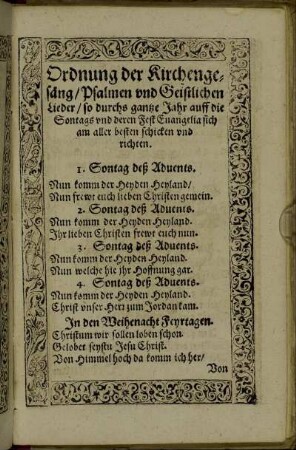 Ordnung der Kirchenge-
säng/Psalmen vnd Geistlichen
Lieder/so durchs gantze Jahr auff die
Sontags vnd deren Fest Euangelia sich
am aller besten schicken vnd
richten.
1. Sontag deß Aduents.
Nun komm der Heyden Heyland/
Nun frewt euch lieben Christen gemein.
2. Sontag deß Aduents.
Nun komm der Heyden Heyland.
Ihr lieben Christen frewt euch nun.
3. Sontag deß Aduents.
Nun komm der Heyden Heyland.
Nun welche hie ihr Hoffnung gar.
4. Sontag deß Aduents.
Nun komm der Heyden Heyland.
Christ vnser Herr zum Jordan kam.
In den Weihenacht Feyrtagen.
Christum wir sollen loben schon.
Gelobet seystu Jesu Christ.
Von Himmel hoch da komm ich her/
Von